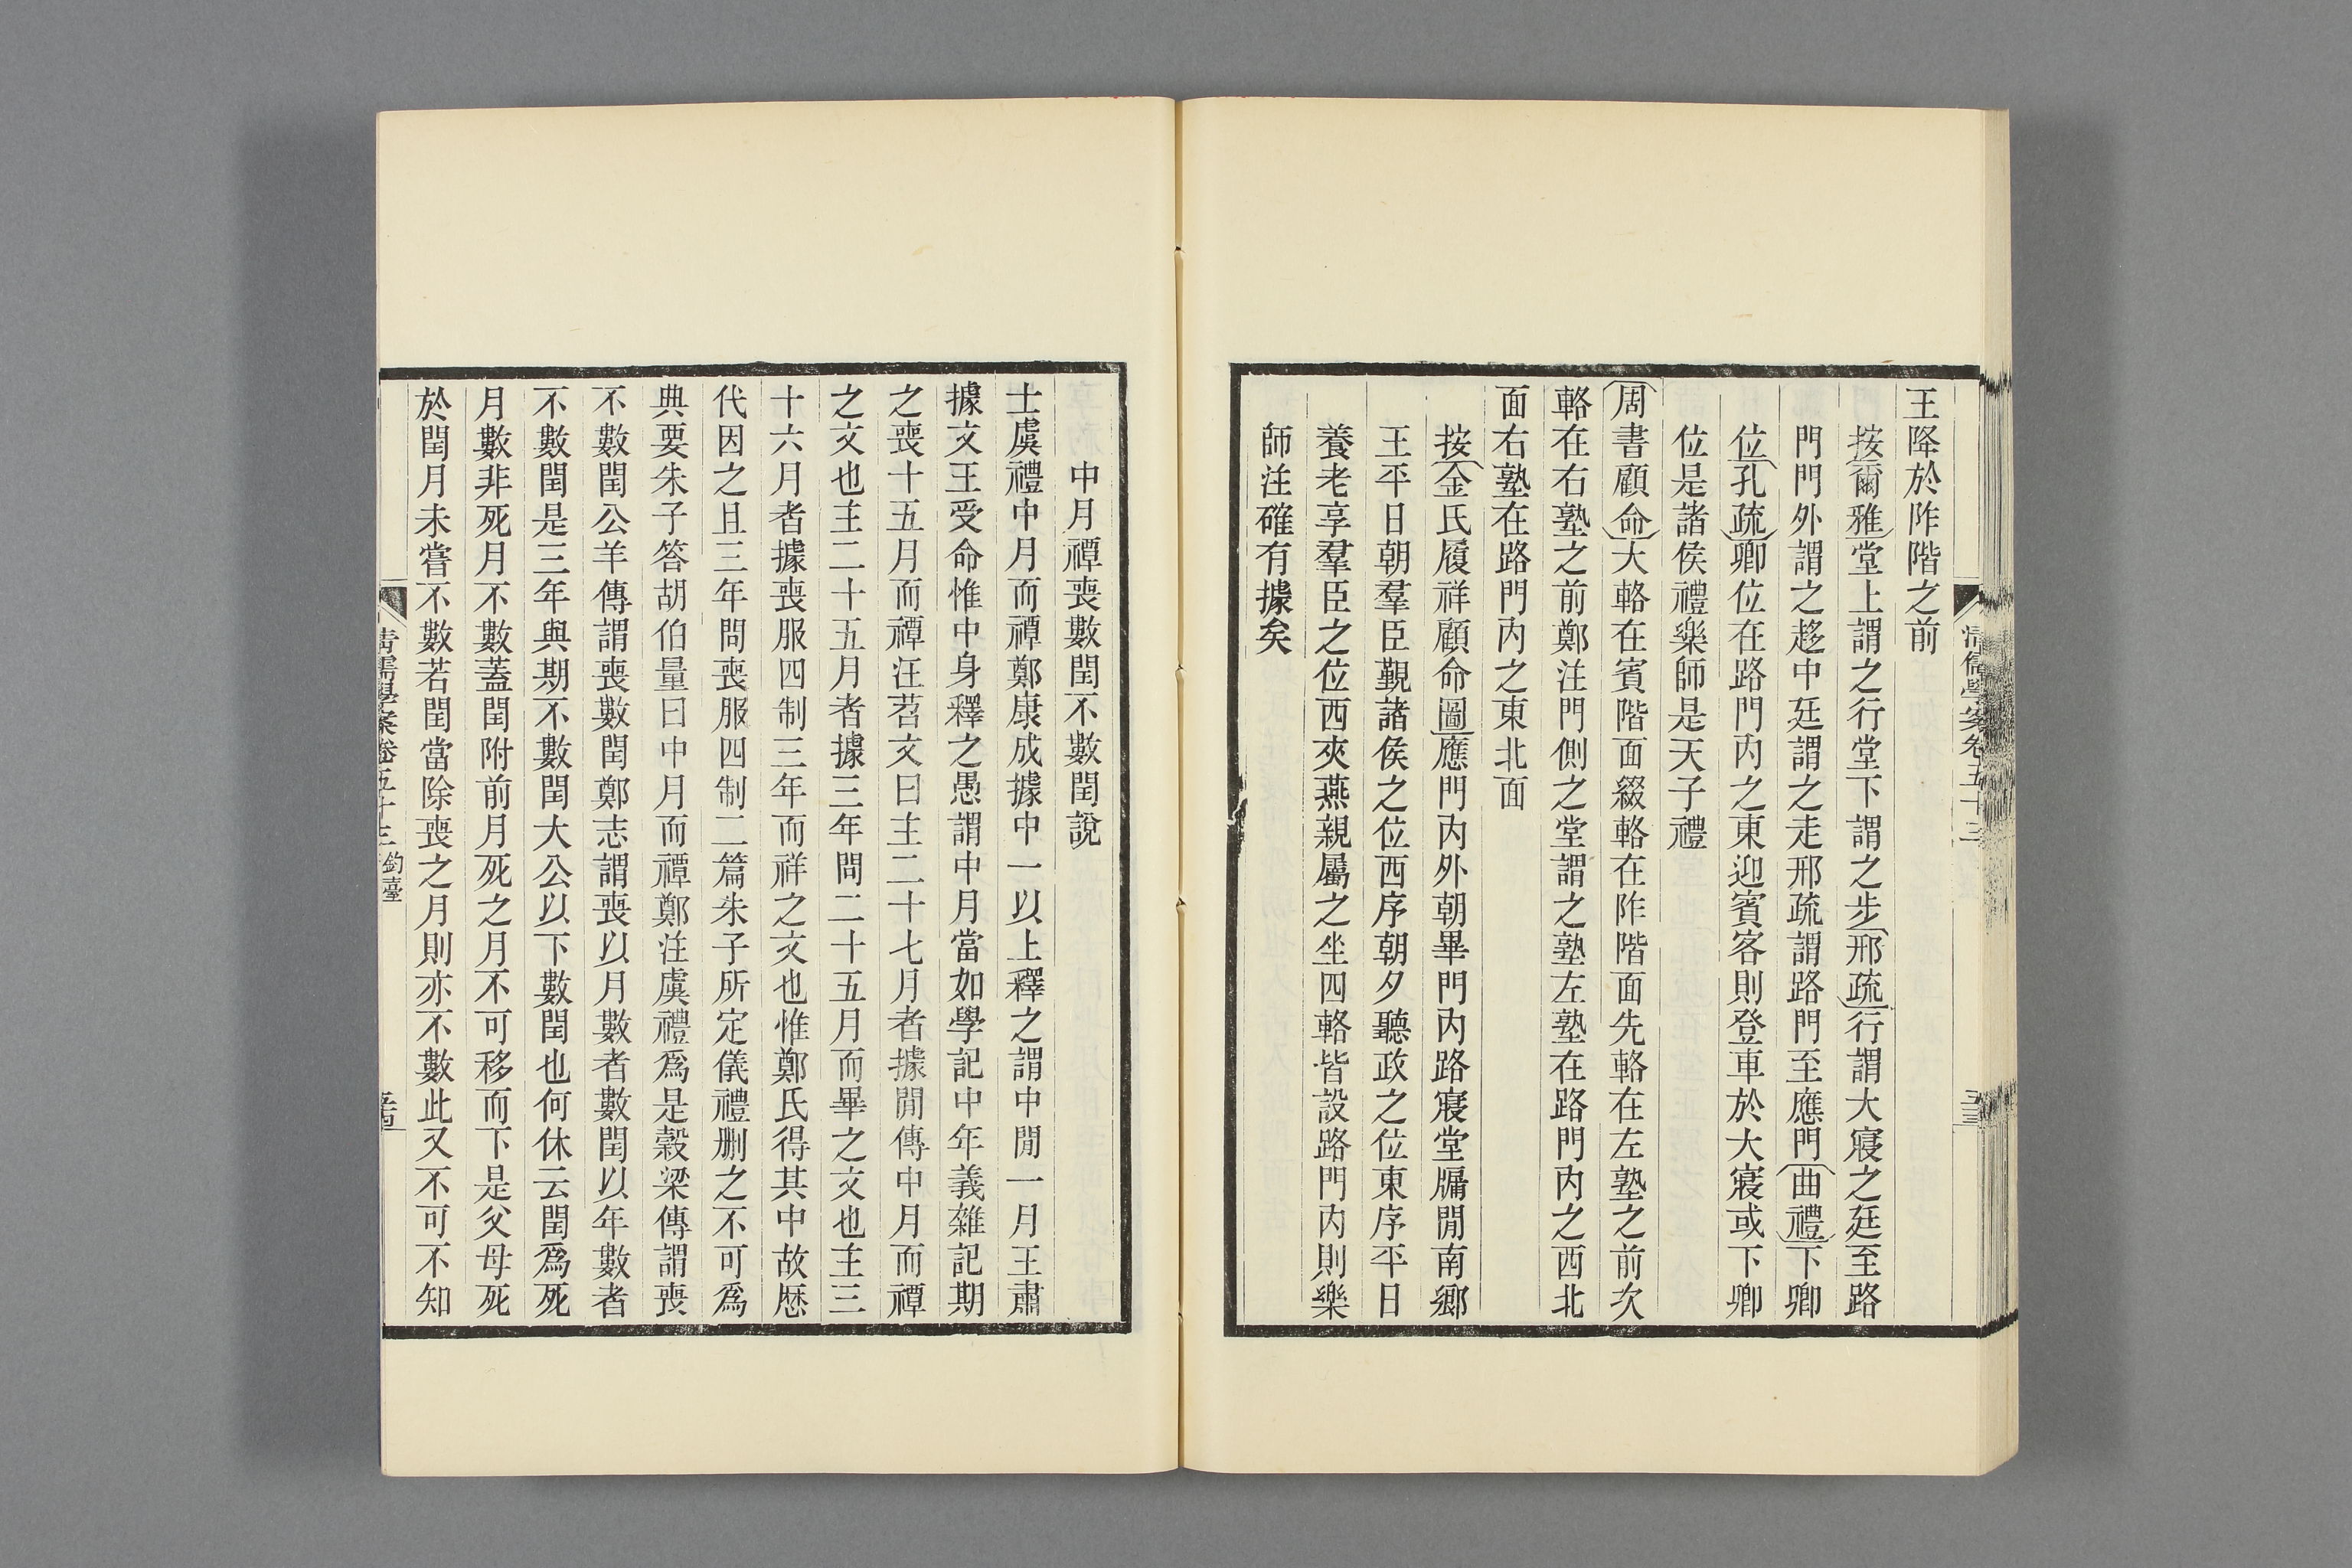 王降於阼階之前
按爾雅堂上謂之行堂下謂之步邢疏行謂大寢之廷至路
門門外謂之趨中廷謂之走邢疏謂路門至應門曲禮下卿
位孔疏卿位在路門內之東迎賓客則登車於大寢或下卿
位是諸侯禮樂師是天子禮
周書顧命大輅在賓階面綴輅在阼階面先輅在左塾之前次
輅在右塾之前鄭注門側之堂謂之塾左塾在路門內之西北
面右塾在路門內之東北面
按金氏履祥顧命圖應門內外朝畢門內路寢堂牖閒南鄉
王平日朝羣臣覲諸侯之位西序朝夕聽政之位東序平日
養老享羣臣之位西夾燕親屬之坐四輅皆設路門內則樂
師注確有據矣
清儒學案卷五十三
五三
中月禫喪數閏不數閏說
士虞禮中月而禫鄭康成據中一以上釋之謂中閒一月王肅
據文王受命惟中身釋之愚謂中月當如學記中年義雜記期
之喪十五月而禫注若文曰主二十七月者據閒傳中月而禫
之文也主二十五月者據三年問二十五月而畢之文也主三
十六月者據喪服四制三年而祥之文也惟鄭氏得其中故歷
代因之且三年問喪服四制二篇朱子所定儀禮刪之不可爲
典要朱子答胡伯量曰中月而禫鄭注虞禮爲是穀梁傳謂喪
不數閏公羊傳謂喪數閏鄭志謂喪以月數者數閏以年數者
不數閏是三年與期不數閏大公以下數閏也何休云閏爲死
月數非死月不數蓋閏附前月死之月不可移而下是父母死
於閏月未嘗不數若閏當除喪之月則亦不數此又不可不知
清儒學案卷五十三 鈞臺
五四